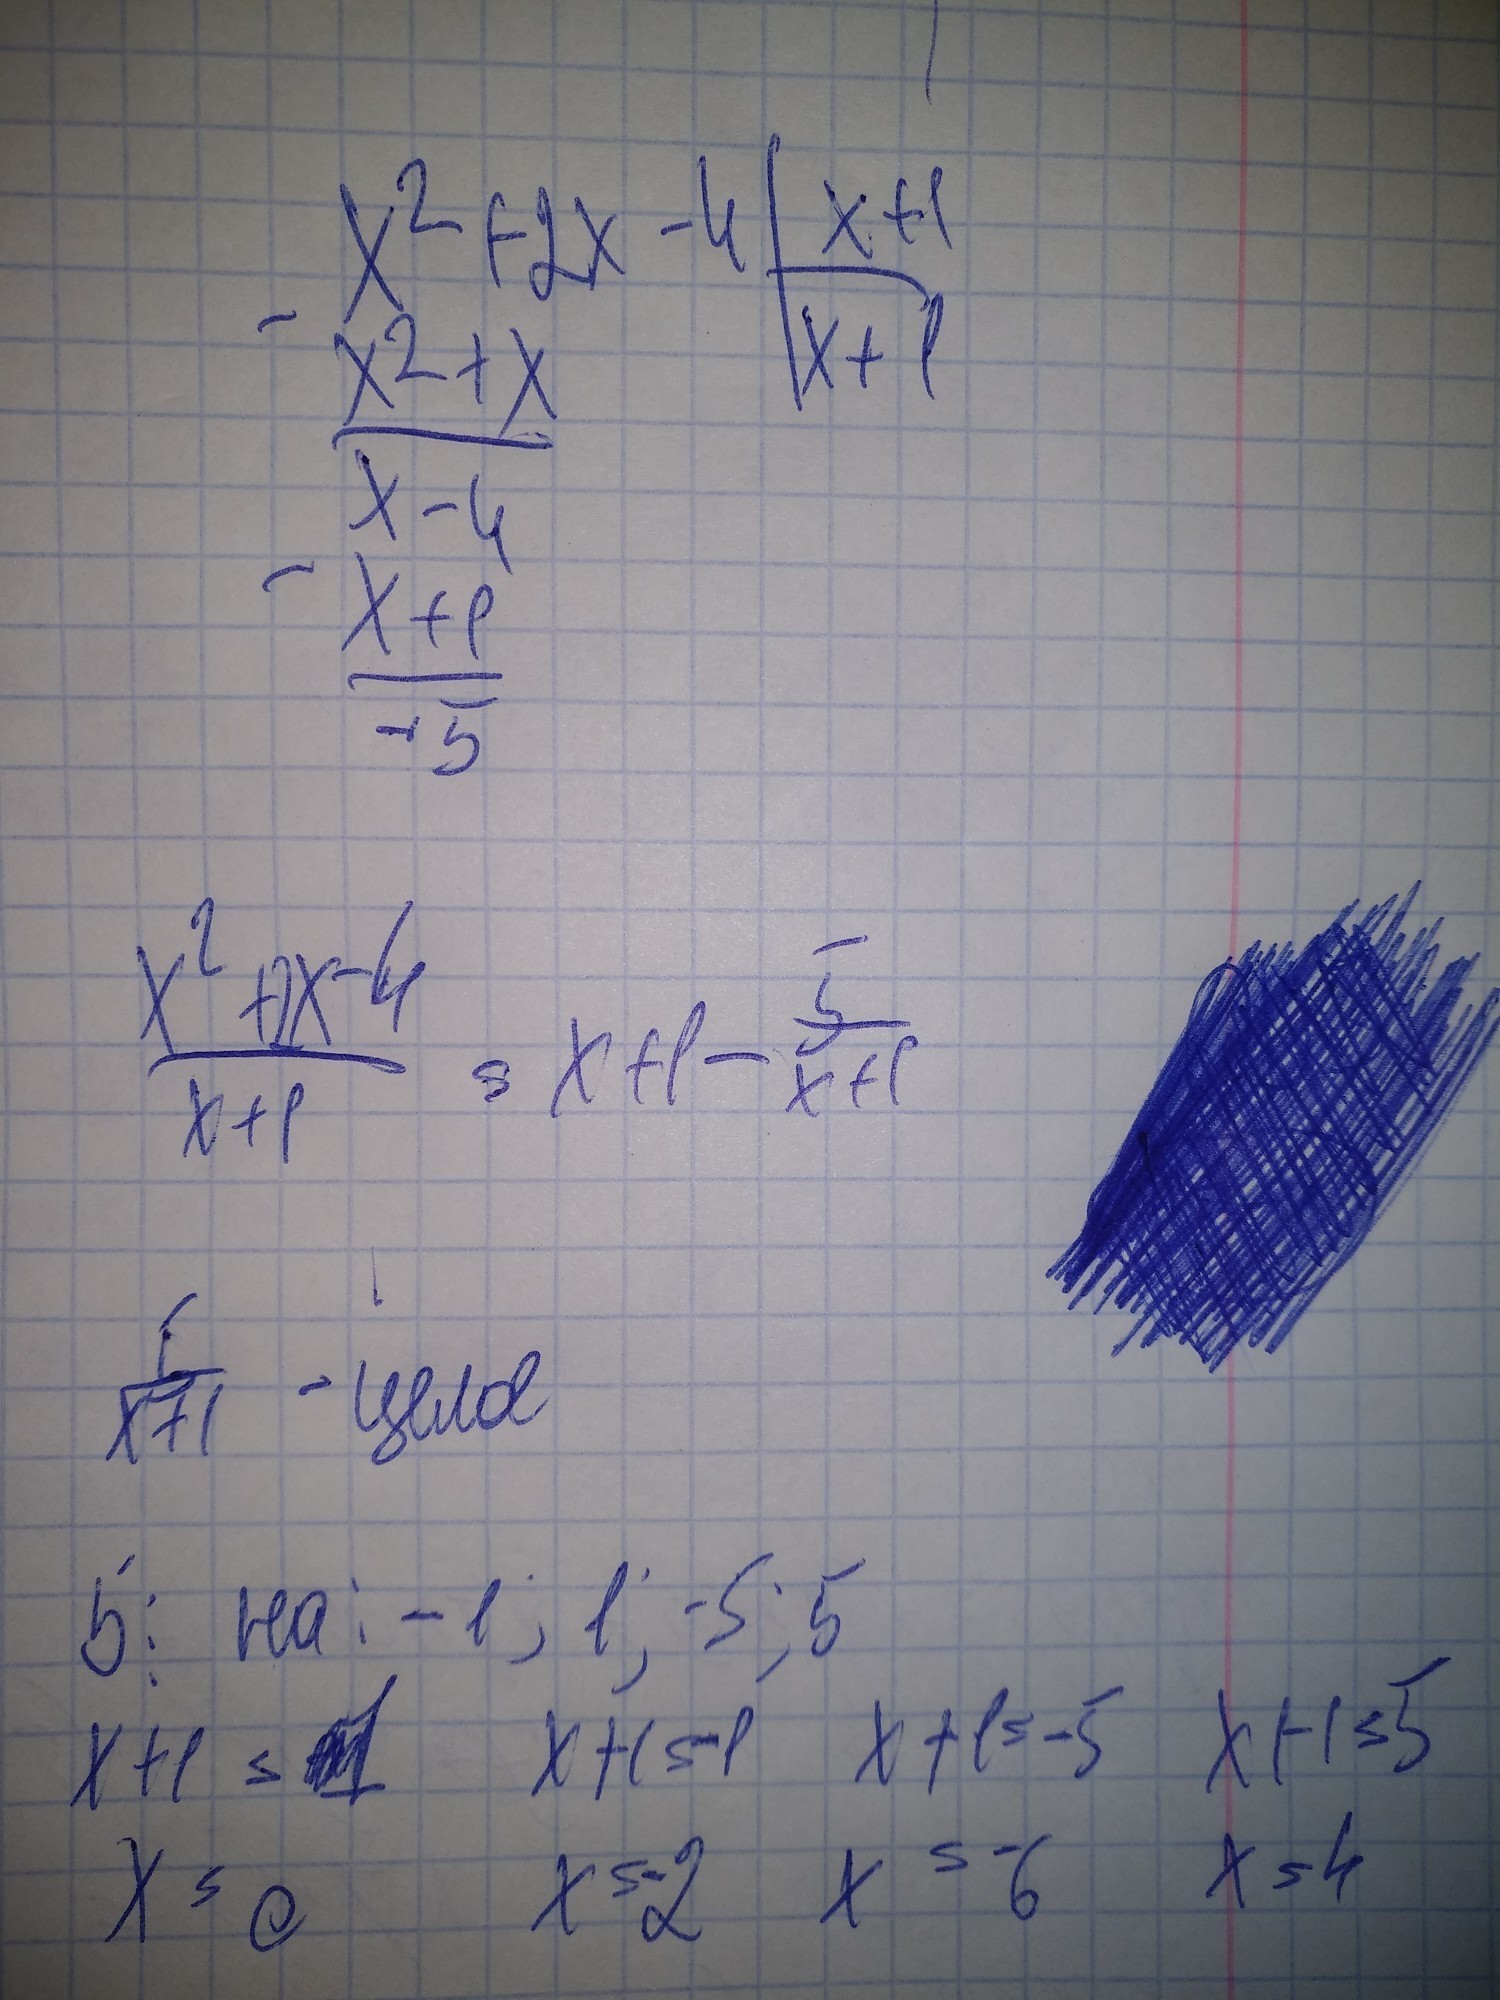 x² + 2x - 4 | x + 1
- x² + x | x + 1
x - 4
- x + 1
- 5
x² + 2x - 4 / x + 1 = x + 1 - 5 / x + 1
5 / x + 1 - цела
5: на: -1; 1; -5; 5
x + 1 = 1 x + 1 = -1 x + 1 = -5 x + 1 = 5
x = 0 x = -2 x = -6 x = 4